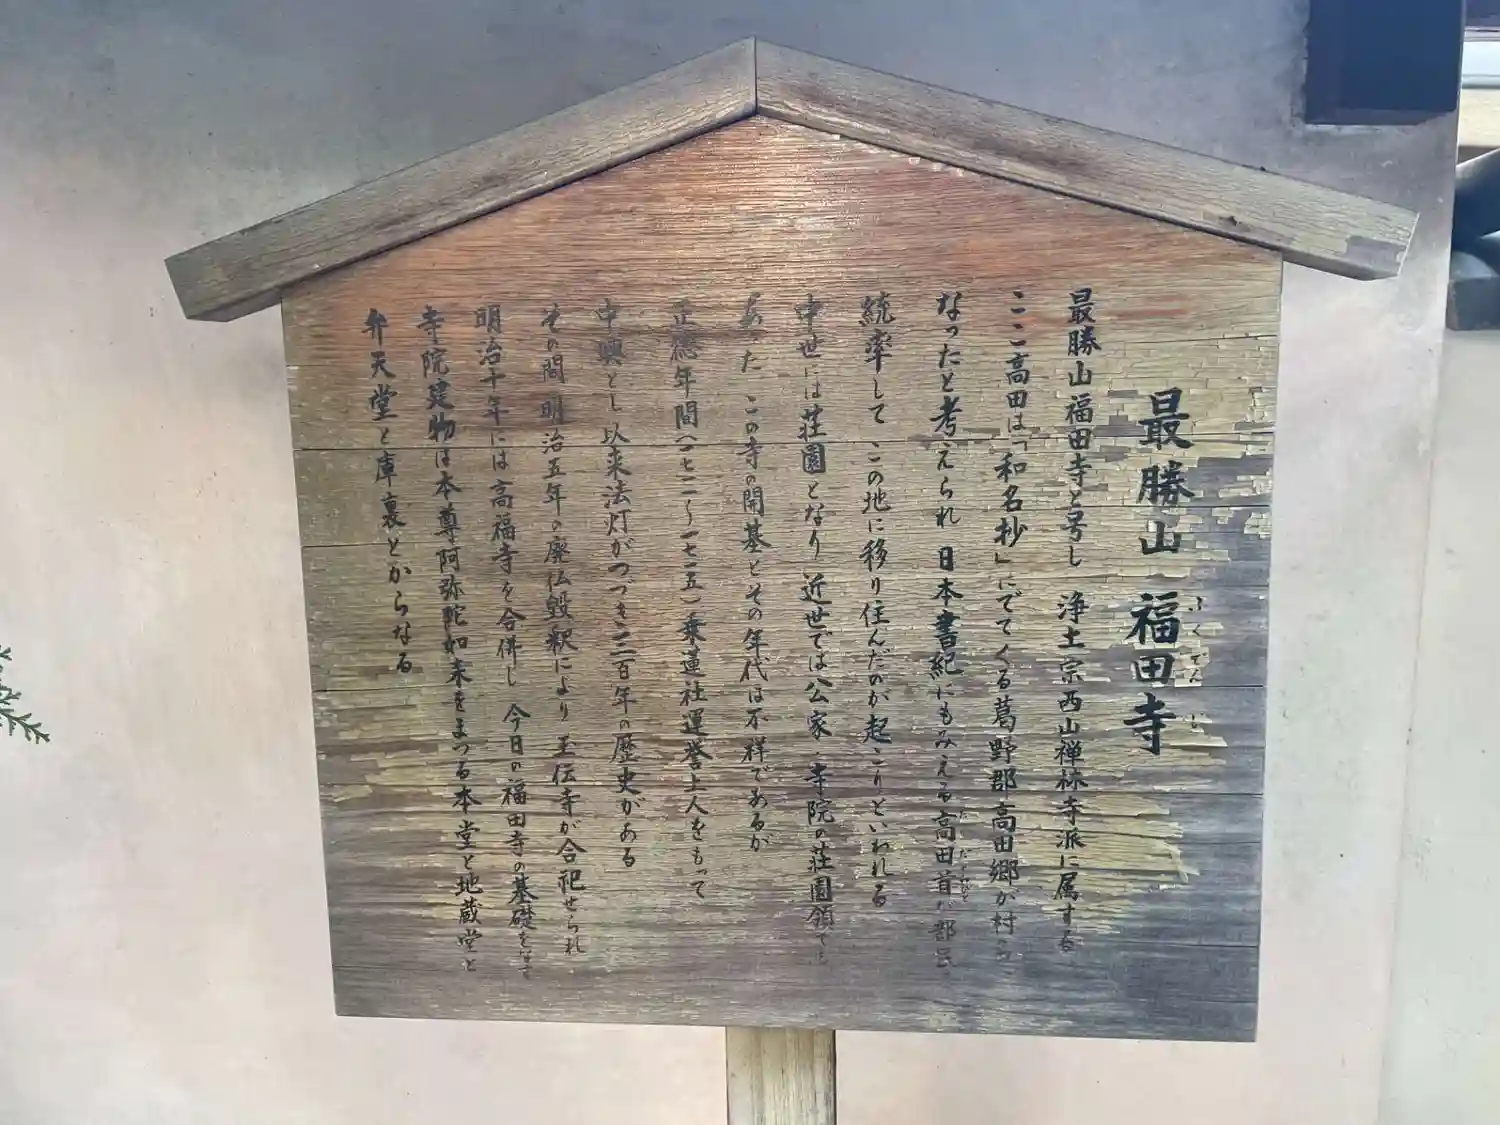 最勝山 福田寺
ふくでん じ
最勝山福田寺と号し 浄土宗西山禅林寺派に属する
ここ高田は「和名抄」にでてくる葛野郡高田郷が村名
なったと考えられ 日本書紀にもみえる高田首が部民
統率して この地に移り住んだのが起こりといわれる
中世には荘園となり 近世では公家・寺院の荘園領でも
あった この寺の開基とその年代は不祥であるが
正徳年間(一七一一〜一七一五)乗蓮社運誉上人をもって
中興とし 以来法灯がつづき二三百年の歴史がある
その間 明治五年の廃仏毀釈により 玉伝寺が合祀せられ
明治十年には高福寺を合併し 今日の福田寺の基礎をなす
寺院建物は本尊阿弥陀如来をまつる本堂と地蔵堂と
弁天堂と庫裏とからなる